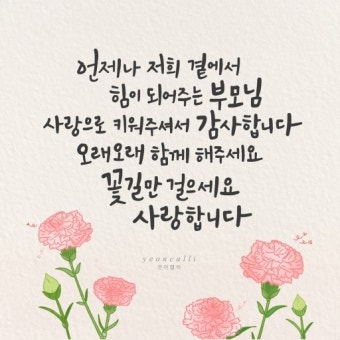 언제나 저희 곁에서
힘이 되어주는 부모님
사랑으로 키워주셔서 감사합니다
오래오래 함께 해주세요
꽃길만 걸으세요
사랑합니다
yeoncalli